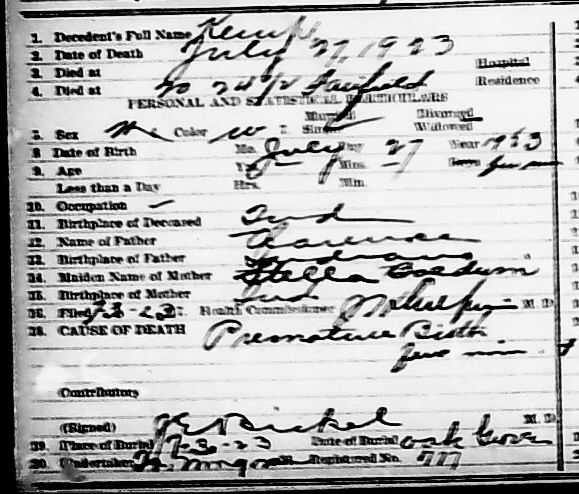 1. Decedent's Full Name Kemp
2. Date of Death July 27, 1923
3. Died at Hospital
4. Died at 2024½ Fairfield Residence
PERSONAL AND STATISTICAL PARTICULARS
Married Divorced
5. Sex Me Color W Single Widowed
8 Date of Birth Mo. July Day 27 Year 1923
9. Age Yrs. — Mos. — Days few min
Less than a Day Hrs. Min.
10. Occupation —
11. Birthplace of Deceased Ind
12. Name of Father Clarence
13. Birthplace of Father Indiana
14. Maiden Name of Mother Stella
15. Birthplace of Mother Ind
16. Filed Health Commissioner M. D.
CAUSE OF DEATH Premature Birth
few min
Contributory
(Signed) M. D.
19. Place of Burial Date of Burial Oak
20. Undertaker Registered No. 717